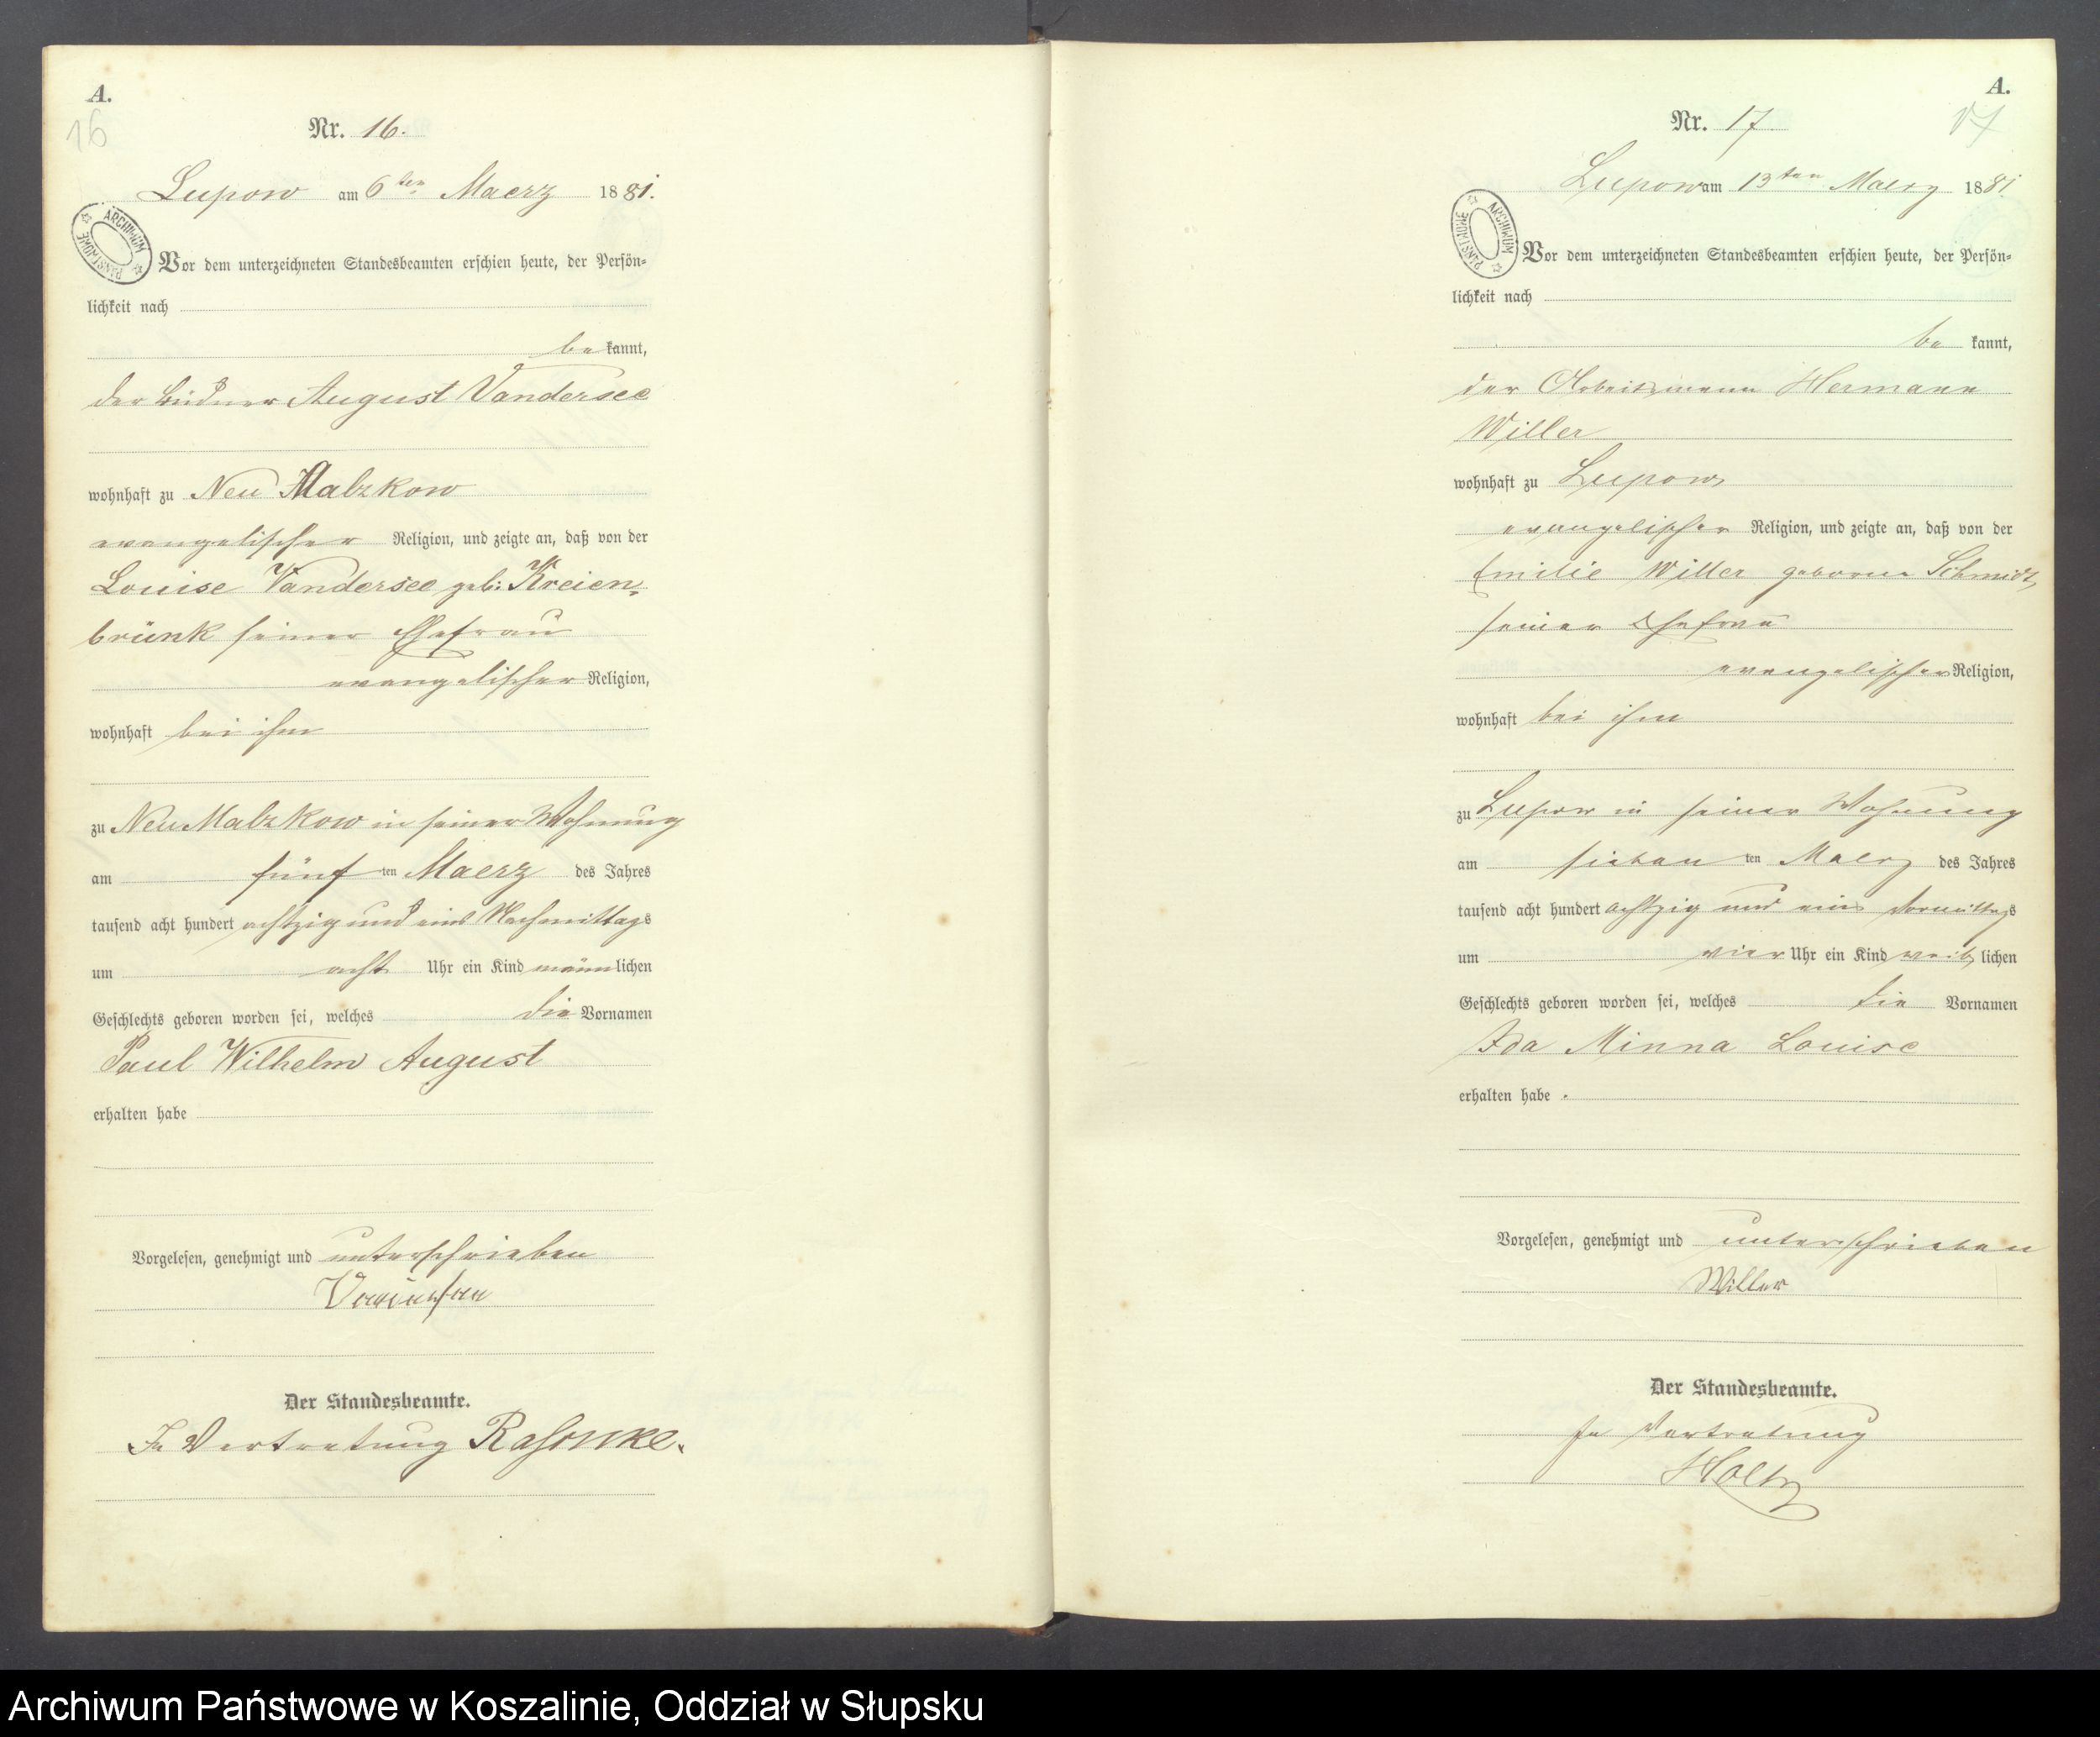 A.
16
Nr. 16.
Lupow am 6ten Maerz 1881.
ARCHIWUM PAŃSTWOWE
Vor dem unterzeichneten Standesbeamten erschien heute, der Persön-
lichkeit nach
be kannt,
der Büdner August Vandersee
wohnhaft zu Neu Malzkow
evangelischer Religion, und zeigte an, daß von der
Louise Vandersee geb: Kreien-
brünk seiner Ehefrau
evangelischer Religion,
wohnhaft bei ihm
zu Neu Malzkow in seiner Wohnung
am fünf ten Maerz des Jahres
tausend acht hundert achtzig und eins Nachmittags
um acht Uhr ein Kind männlichen
Geschlechts geboren worden sei, welches die Vornamen
Paul Wilhelm August
erhalten habe
Vorgelesen, genehmigt und unterschrieben
Der Standesbeamte.
In Vertretung
A.
17
Nr. 17
Lupow am 13ten Maerz 1881.
ARCHIWUM PAŃSTWOWE
Vor dem unterzeichneten Standesbeamten erschien heute, der Persön-
lichkeit nach
be kannt,
der Arbeitsmann Hermann
Willer
wohnhaft zu Lupow
evangelischer Religion, und zeigte an, daß von der
Emilie Willer geborne Schmidt,
seiner Ehefrau
evangelischer Religion,
wohnhaft bei ihm
zu Lupow in seiner Wohnung
am sieben ten Maerz des Jahres
tausend acht hundert achtzig und eins Vormittags
um vier Uhr ein Kind weib lichen
Geschlechts geboren worden sei, welches die Vornamen
Ida Minna Louise
erhalten habe.
Vorgelesen, genehmigt und unterschrieben
Willer
Der Standesbeamte.
In Vertretung
Holtz
Archiwum Państwowe w Koszalinie, Oddział w Słupsku